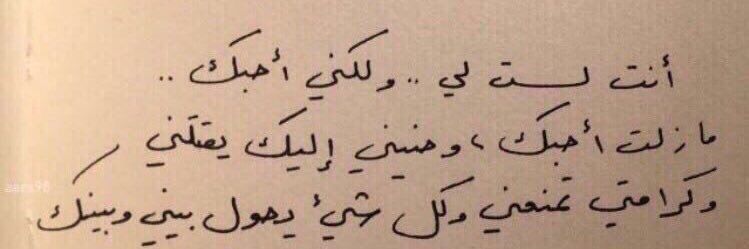 أنت لست لي .. ولكني أحبك ..
مازلت أحبك ، وحنيني إليك يقتلني
وكرامتي تمنعني وكل شيء يحول بيني وبينك